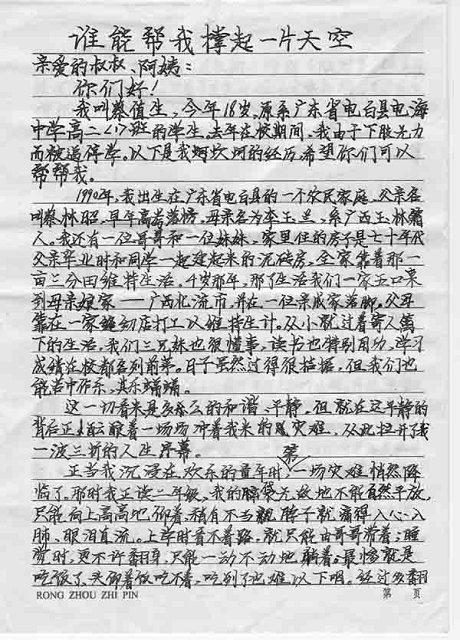 谁能帮我撑起一片天空
亲爱的叔叔、阿姨：
你们好！
我叫蔡值生，今年18岁，原系广东省电白县电海
中学高二<1>班的学生。去年在校期间，我由于下肢无力
而被迫停学。以下是我坎坷的经历希望你们可以
帮帮我。
1990年，我出生在广东省电白县的一个农民家庭，父亲名
叫蔡林昭，早年高考落榜，母亲名为李玉兰，系广西玉林籍
人。我还有一位哥哥和一位妹妹，家里住的房子是七十年代
父亲毕业时和同学一起建起来的泥砖房，全家靠着那一
亩三分田维持生活。4岁那年，那了生活我们一家五口来
到母亲娘家——广西北流市，并在一位亲戚家落脚，父母
靠在一家店打工以维持生计。从小就过着寄人篱
下的生活，我们三兄妹也很懂事，读书也特别用功，学习
成绩在校都名列前茅。日子虽然过得很拮据，但我们也
能苦中作乐，其乐融融。
这一切看来是多么的和谐、平静，但就在这平静的
背后正酝酿着一场场冲着我来的灾难，从此拉开了我
一波三折的人生序幕。
正当我沉浸在欢乐的童年时，一场灾难悄然降
临了。那时我正读三年级，我的脑袋无故地不能自然平放，
只能向上高高地仰着，稍有不当脖子就痛得入心、入
肺，眼泪直流。上学时看不着路，就只能由哥哥带着；睡
觉时，更不许翻身，只能一动不动地躺着；最惨就是
吃饭了，头仰着饭吃不着，吃到了也难以下咽。经过多翻
RONG ZHOU ZHI PIN
第 页